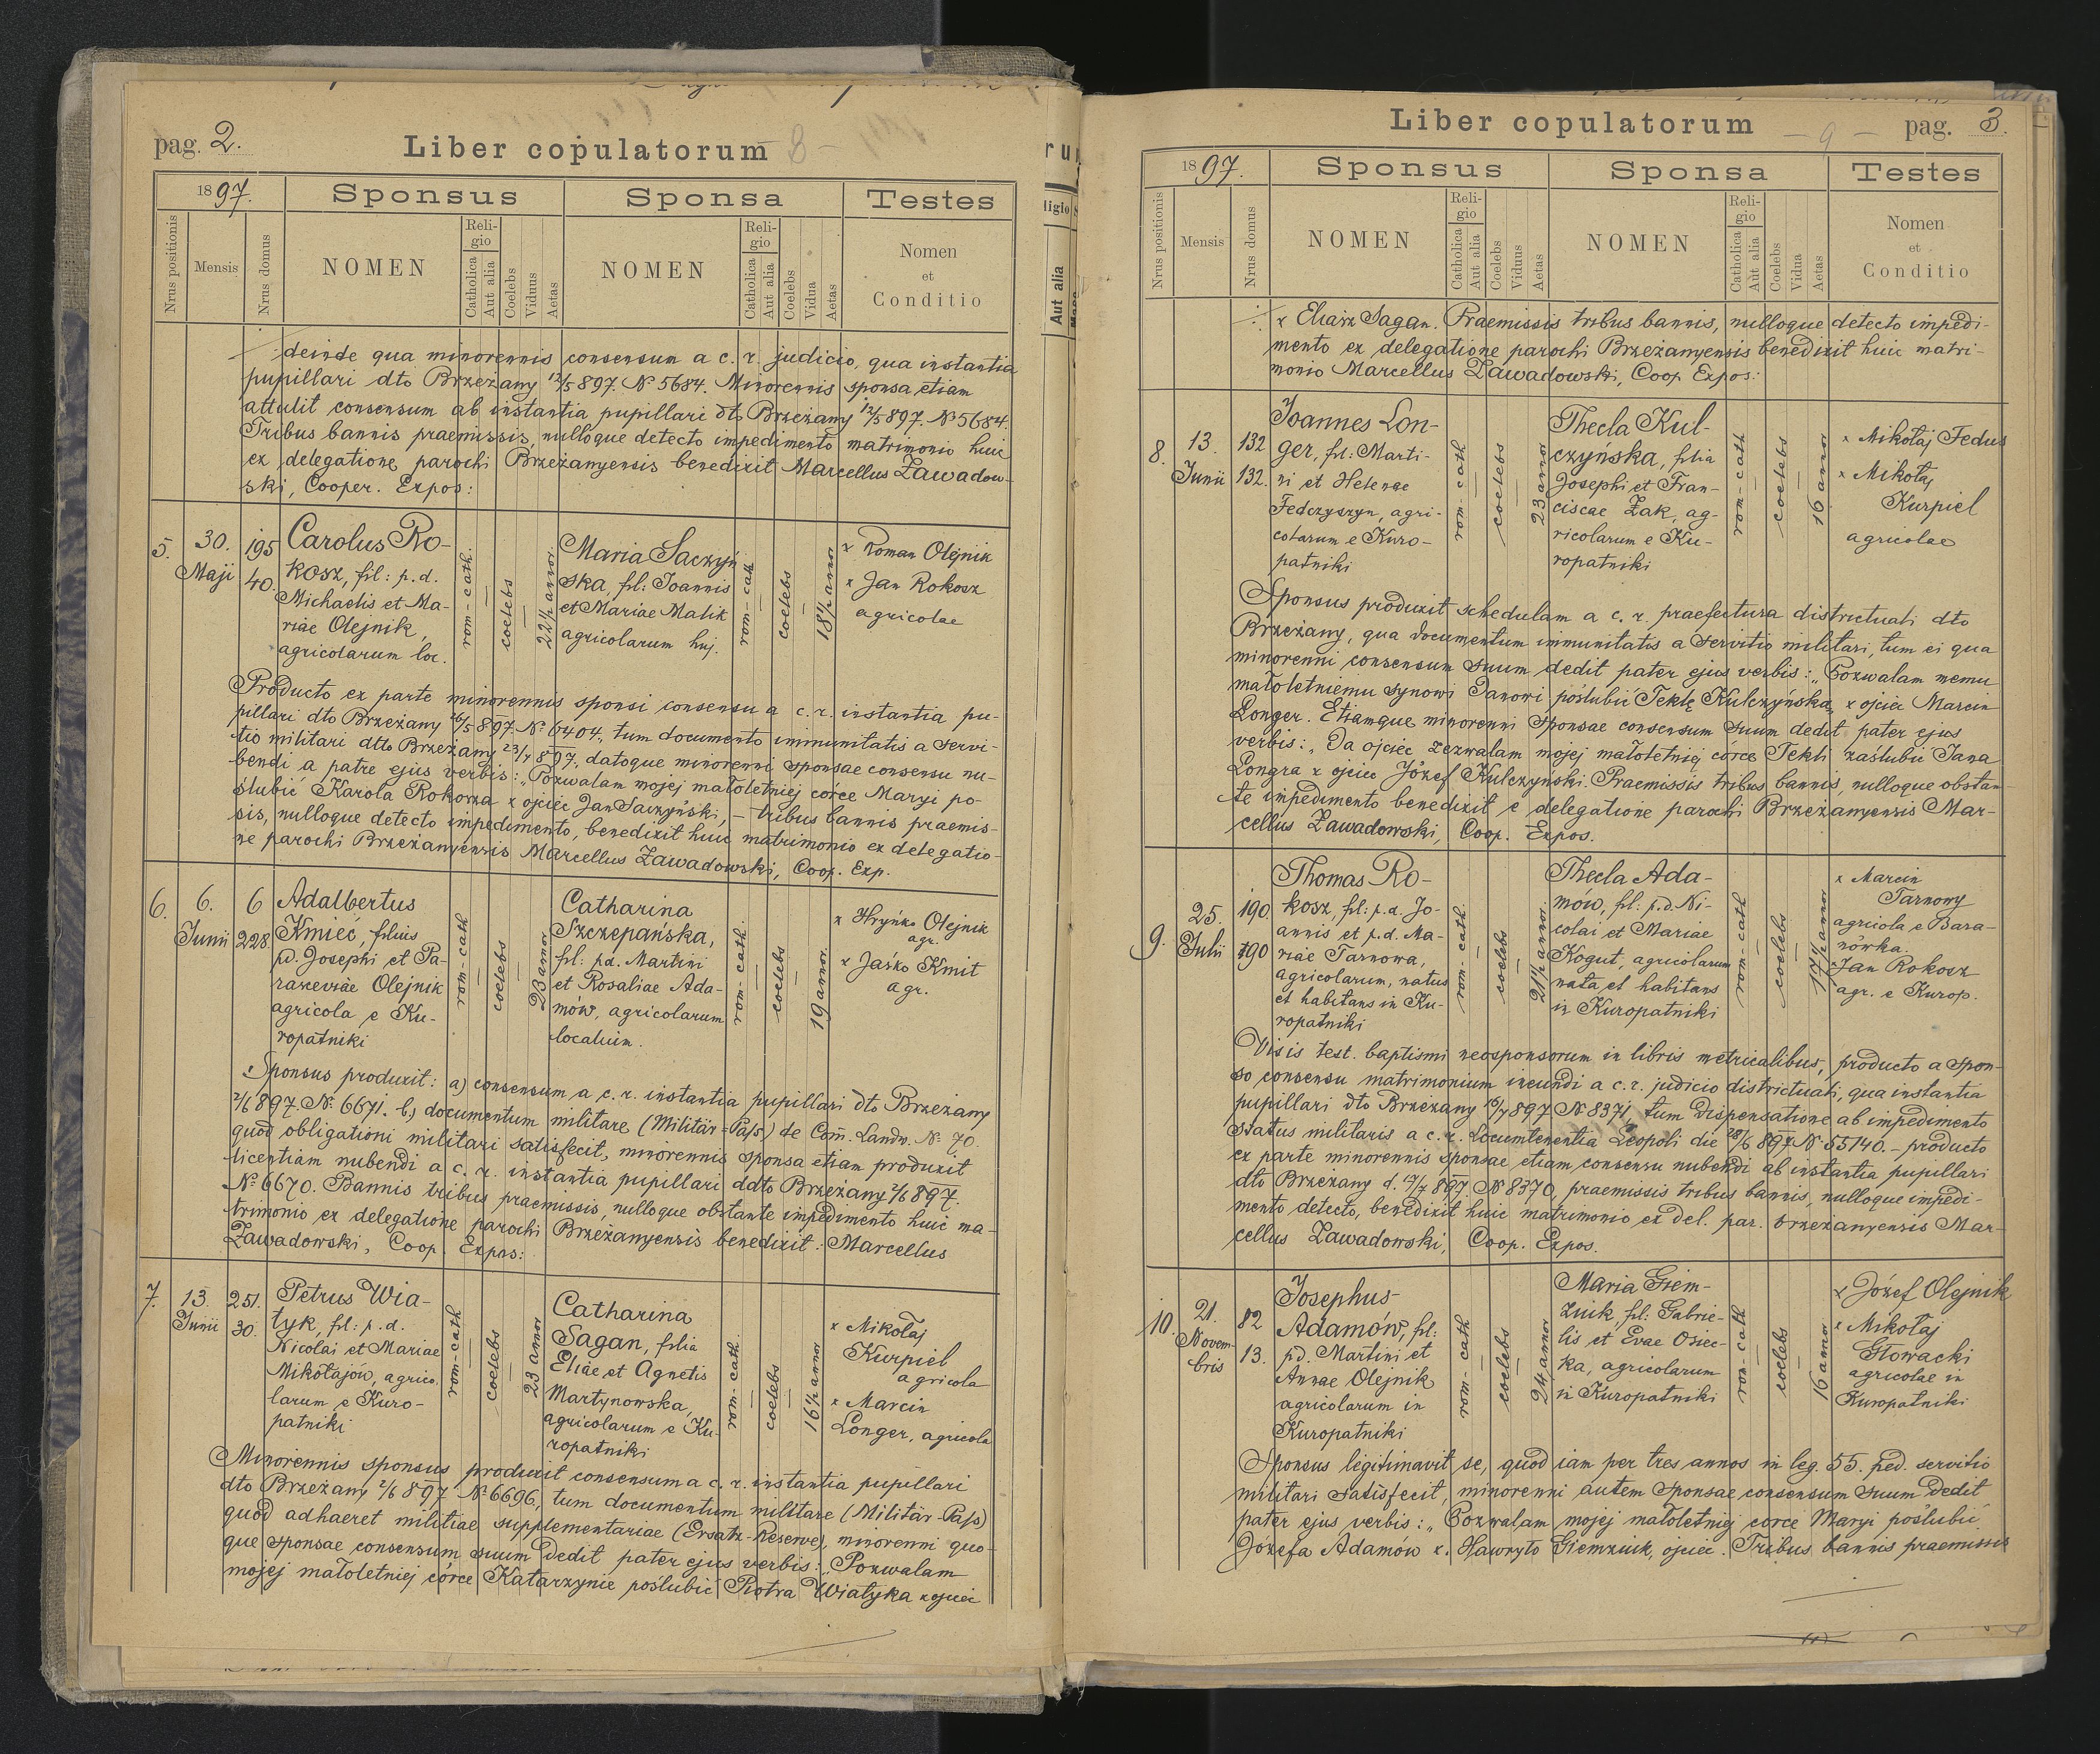 pag. 2.
Liber copulatorum
8 -
1897.
Sponsus
Sponsa
Testes
Nrus positionis
Mensis
Nrus domus
NOMEN
Religio
Catholica
Aut alia
Coelebs
Viduus
Aetas
NOMEN
Religio
Catholica
Aut alia
Coelebs
Vidua
Aetas
Nomen
et
Conditio
deinde qua minorennis consensum a c. r. judicio, qua instantia
pupillari dto Brzeżany 12/5 897. № 5684. Minorennis sponsa etiam
attulit consensum ab instantia pupillari dto Brzeżany 12/5 897. № 5684.
Tribus bannis praemissis, nulloque detecto impedimento matrimonio huic
ex delegatione parochi Brzeżanyensis benedixit Marcellus Zawadow-
ski, Cooper. Expos:
5.
30.
Maji
195
40.
Carolus Ro-
kosz, fil: p. d.
Michaelis et Ma-
riae Olejnik,
agricolarum loc.
rom-cath.
coelebs
22½ annor
Maria Saczyń
ska, fil: Joannis
et Mariae Malik
agricolarum huj.
rom-cath
coelebs
18½ annor
x Roman Olejnik
x Jan Rokosz
agricolae
Producto ex parte minorennis sponsi consensu a c. r. instantia pu-
pillari dto Brzeżany 26/5 897. № 6404, tum documento immunitatis a servi-
tio militari dtto Brzeżany 23/7 897, datoque minorenni sponsae consensu nu-
bendi a patre ejus verbis: „Pozwalam mojej małoletniej córce Maryi po-
ślubić Karola Rokosza x ojciec Jan Saczyński, – tribus bannis praemis-
sis, nulloque detecto impedimento, benedixit huic matrimonio ex delegatio-
ne parochi Brzeżanyensis Marcellus Zawadowski, Coop. Exp.
6.
6.
Junii
6
228.
Adalbertus
Kmieć, filius
pd. Josephi et Pa-
rasceviae Olejnik
agricola e Ku-
ropatniki
rom-cath
coelebs
23 annor
Catharina
Szczepańska,
fil: pd. Martini
et Rosaliae Ada-
mów, agricolarum
localium.
rom-cath.
coelebs
19 annor.
x Hryńko Olejnik
agr.
x Jaśko Kmit
agr.
Sponsus produxit: a) consensum a c. r. instantia pupillari dto Brzeżany
2/6 897. №. 6671. b.) documentum militare (Militär-Pass) de Com. Landw. №. 70.
quod obligationi militari satisfecit, minorennis sponsa etiam produxit
licentiam nubendi a c. r. instantia pupillari ddto Brzeżany 2/6 897.
№ 6670. Bannis tribus praemissis, nulloque obstante impedimento huic ma-
trimonio ex delegatione parochi Brzeżanyensis benedixit: Marcellus
Zawadowski, Coop. Expos:
7.
13.
Junii
251.
30.
Petrus Wia-
tyk, fil: p. d.
Nicolai et Mariae
Mikołajów, agrico-
larum e Kuro-
patniki
rom-cath
coelebs
23 annor
Catharina
Sagan, filia
Eliae et Agnetis
Martynowska,
agricolarum e Ku-
ropatniki
rom-cath.
coelebs
16½ annor
x Mikołaj
Kurpiel
agricola
x Marcin
Longer, agricola
Minorennis sponsus produxit consensum a c. r. instantia pupillari
dto Brzeżany 2/6 897 № 6696, tum documentum militare (Militär-Pass)
quod adhaeret militiae supplementariae (Ersatz-Reserve), minorenni quo-
que sponsae consensum suum dedit pater ejus verbis: „Pozwalam
mojej małoletniej córce Katarzynie poślubić Piotra Wiatyka x ojciec
Liber copulatorum
- 9 -
pag. 3.
1897.
Sponsus
Sponsa
Testes
Nrus positionis
Mensis
Nrus domus
NOMEN
Religio
Catholica
Aut alia
Coelebs
Viduus
Aetas
NOMEN
Religio
Catholica
Aut alia
Coelebs
Vidua
Aetas
Nomen
et
Conditio
x Eliasz Sagan. Praemissis tribus bannis, nulloque detecto impedi-
mento ex delegatione parochi Brzeżanyensis benedixit huic matri-
monio Marcellus Zawadowski, Coop Expos:
8.
13.
Junii
132
132.
Joannes Lon-
ger, fil: Marti-
ni et Helenae
Fedczyszyn, agri-
colarum e Kuro-
patniki
rom-cath
coelebs
23 annor
Thecla Kul-
czyńska, filia
Josephi et Fran-
ciscae Żak, ag-
ricolarum e Ku-
ropatniki
rom-cath
coelebs
16 annor
x Mikołaj Fedus
x Mikołaj
Kurpiel
agricolae
Sponsus produxit schedulam a c. r. praefectura districtuali dto
Brzeżany, qua documentum immunitatis a servitio militari, tum ei qua
minorenni consensum suum dedit pater ejus verbis: „Pozwalam memu
małoletniemu synowi Janowi poślubić Teklę Kulczyńską, x ojciec Marcin
Longer. Etiamque minorenni sponsae consensum suum dedit pater ejus
verbis: „Ja ojciec zezwalam mojej małoletniej córce Tekli zaślubić Jana
Longra x ojciec Józef Kulczyński. Praemissis tribus bannis, nulloque obstan-
te impedimento benedixit e delegatione parochi Brzeżanyensis Mar-
cellus Zawadowski, Coop. Expos.
9.
25.
Julii
190.
190
Thomas Ro-
kosz, fil: p. d. Jo-
annis et p. d. Ma-
riae Tarnowa,
agricolarum, natus
et habitans in Ku-
ropatniki
rom-cath.
coelebs
21½ annor.
Thecla Ada-
mów, fil: p. d. Ni-
colai et Mariae
Kogut, agricolarum
nata et habitans
in Kuropatniki
rom-cath
coelebs
17½ annor
x Marcin
Tarnowy
agricola e Bara-
nówka.
x Jan Rokosz
agr. e Kurop.
Visis test. baptismi neosponsorum in libris metricalibus, producto a spon-
so consensu matrimonium ineundi a c. r. judicio districtuali, qua instantia
pupillari dto Brzeżany 16/7 897 № 8371, tum dispensatione ab impedimento
status militaris a c. r. Locumtenentia Leopoli die 28/6 897 № 55140. – producto
ex parte minorennis sponsae etiam consensu nubendi ab instantia pupillari
dto Brzeżany d. 17/7 897. № 8370, praemissis tribus bannis, nulloque impedi-
mento detecto, benedixit huic matrimonio ex del. par. brzeżanyensis Mar-
cellus Zawadowski, Coop. Expos.
10.
21.
Novem-
bris
82
13.
Josephus
Adamów, fil:
pd. Martini et
Annae Olejnik
agricolarum in
Kuropatniki
rom-cath
coelebs
24 annor
Maria Giem-
zuik, fil: Gabrie-
lis et Evae Osiec-
ka, agricolarum
in Kuropatniki
rom-cath
coelebs
16 annor
x Józef Olejnik
x Mikołaj
Głowacki
agricolae in
Kuropatniki
Sponsus legitimavit se, quod iam per tres annos in leg. 55. ped. servitio
militari satisfecit, minorenni autem sponsae consensum suum dedit
pater ejus verbis: „Pozwalam mojej małoletniej córce Maryi poślubić
Józefa Adamów x. Hawryło Giemzuik, ojciec. Tribus bannis praemissis